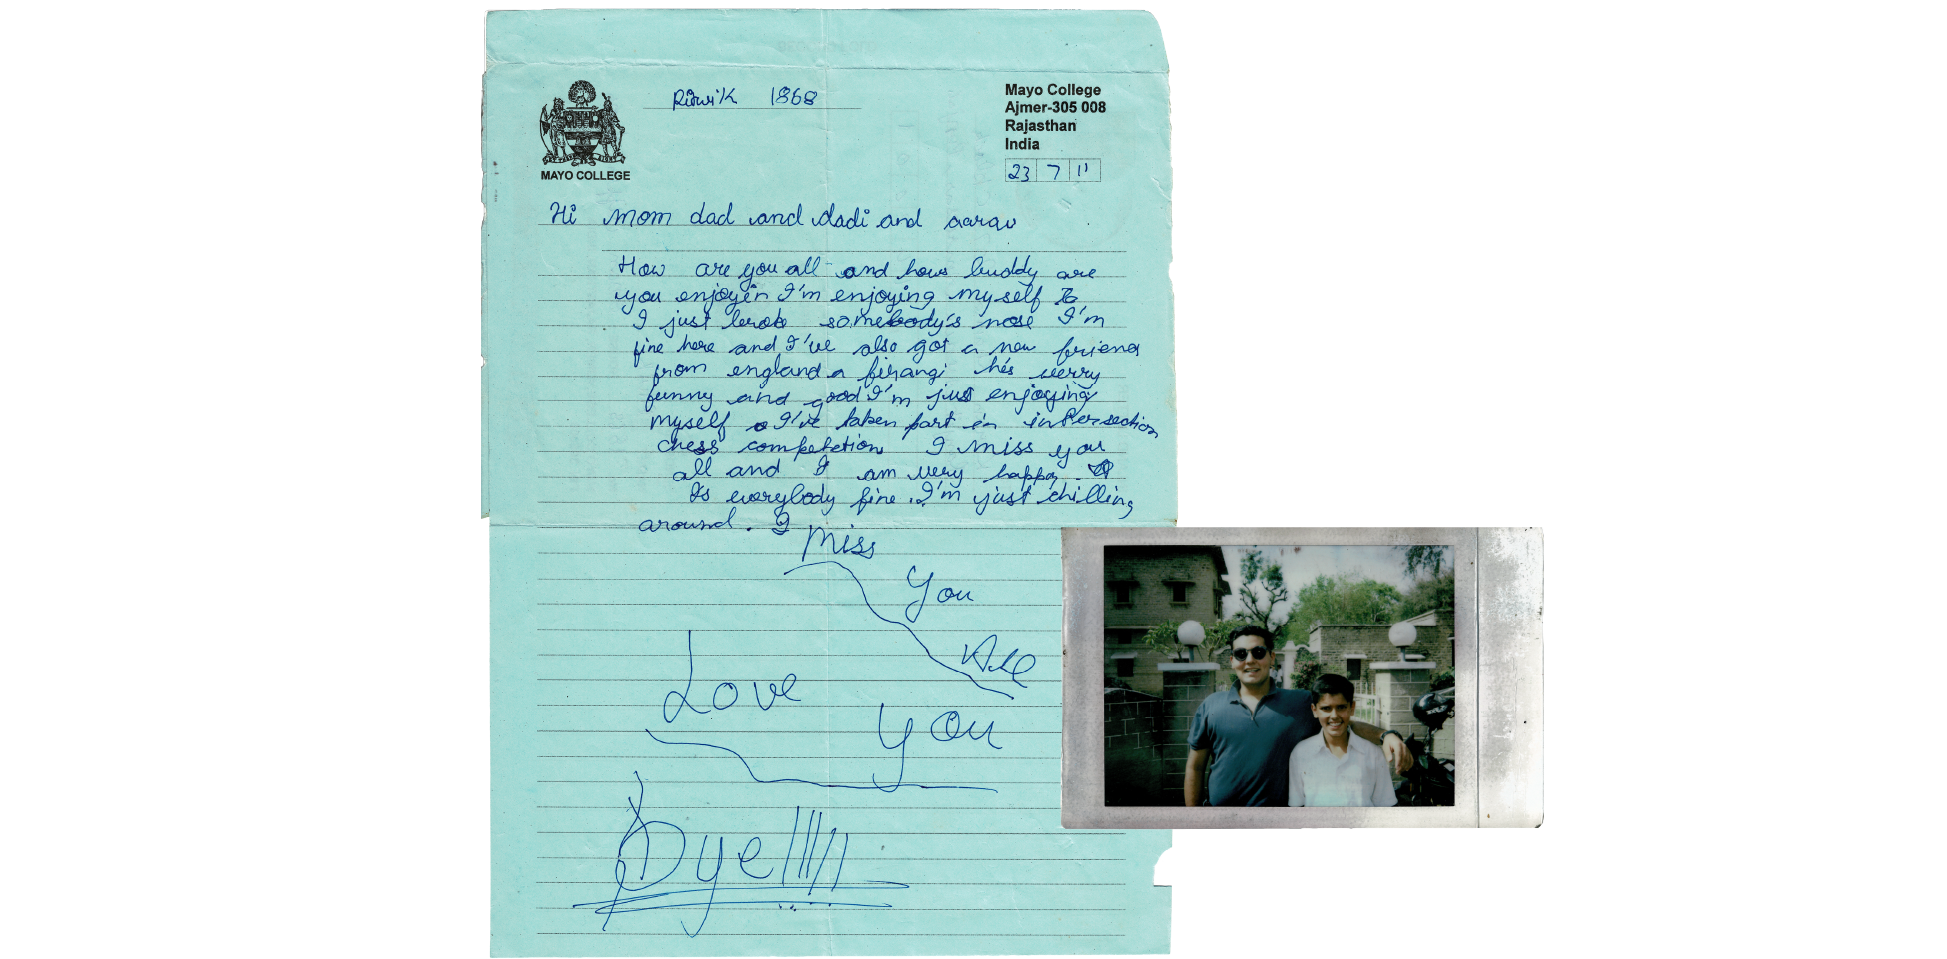 Ritwik 1868
Mayo College
Ajmer-305 008
Rajasthan
India
23 7 11
MAYO COLLEGE
Hi mom dad and dadi and aarav
How are you all and hows buddy are
you enjoyin I'm enjoying myself
I just brok somebody's nose I'm
fine here and I've also got a new friend
from england a firangi hés verry
funny and good I'm just enjoying
myself I've taken part in intersection
chess competetion I miss you
all and I am very happy.
Is everybody fine. I'm just chilling
around. I
Miss
You
All
Love
you
Bye!!!!!